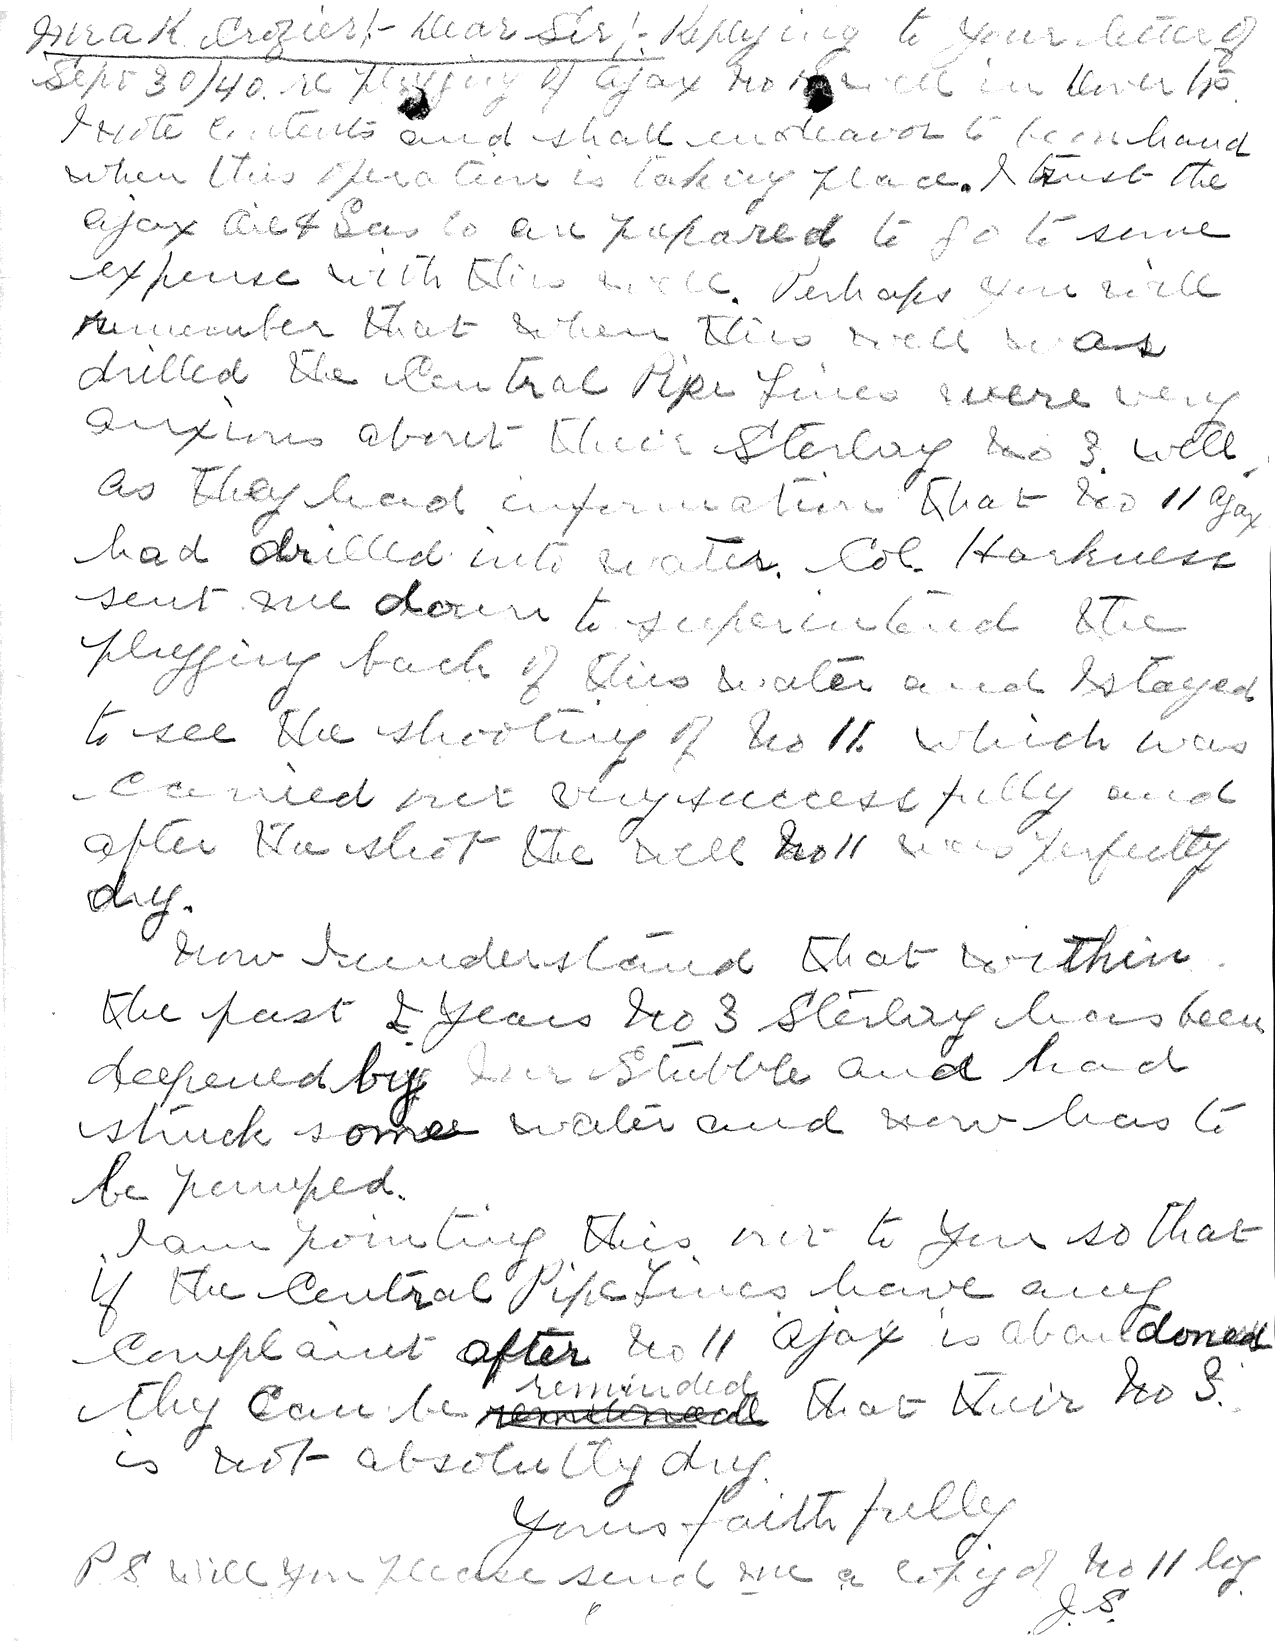 Mr A R. Crozier/- Dear Sir/- Replying to your letter of
Sept 30/40. re plugging of Ajax No 11 well in Dover Tp.
I note contents and shall endeavor to be on hand
when this operation is taking place. I trust the
Ajax Oil & Gas Co are prepared to go to some
expense with this well. Perhaps you will
remember that when this well was
drilled the Central Pipe Lines were very
anxious about their Sterling No 3. well,
as they had information that No 11 Ajax
had drilled into water. Col. Harkness
sent me down to superintend the
plugging back of this water and I stayed
to see the shooting of No 11. which was
carried out very successfully and
after the shot the well No 11 was perfectly
dry.
Now I understand that within
the past 2 years No 3 Sterling has been
deepened by Stubble and had
struck some water and now has to
be pumped.
I am pointing this out to you so that
if the Central Pipe Lines have any
complaint after No 11 Ajax is abandoned
they can be reminded that their No 3.
is not absolutly dry.
Yours faithfully
P.S. Will you please send me a copy of No 11 log.
J.S.